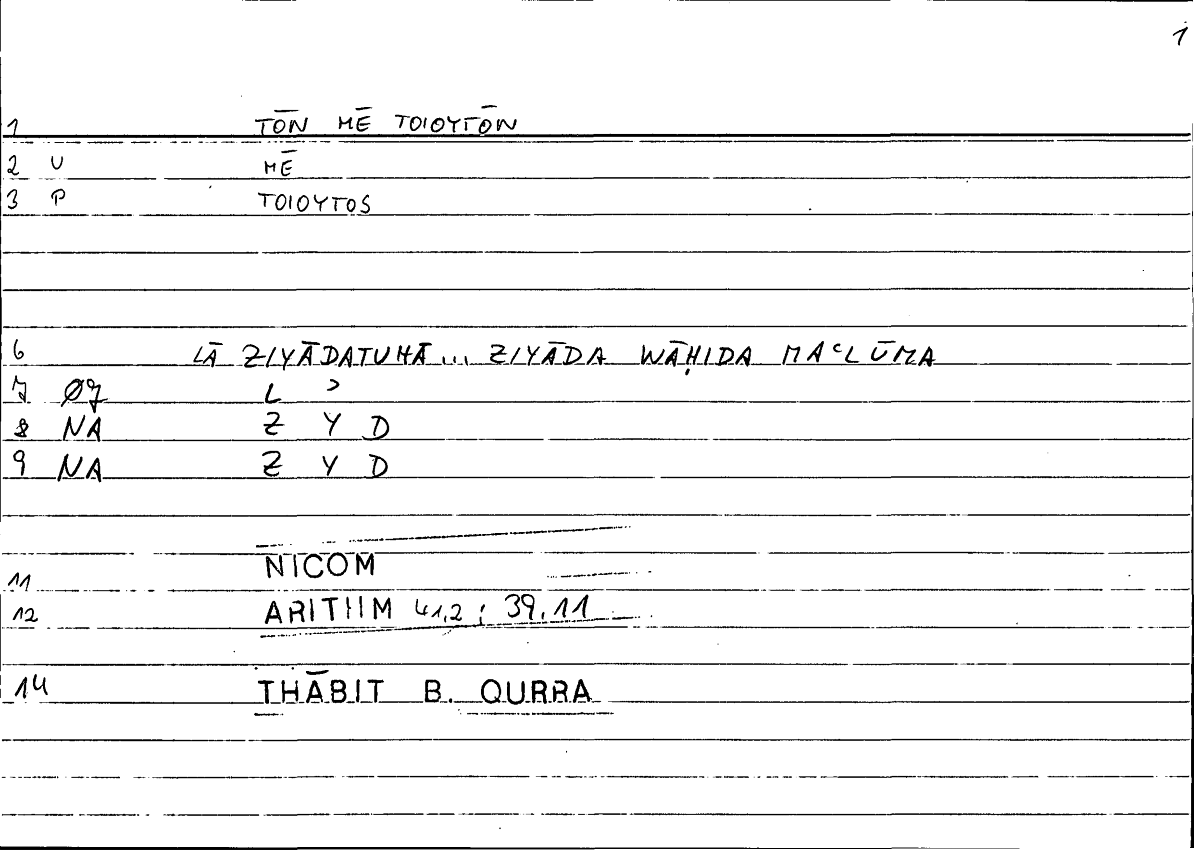 1
1 TŌN MĒ TOIOYTŌN
2 U MĒ
3 P TOIOYTOS
6 LĀ ZIYĀDATUHĀ... ZIYĀDA WĀḤIDA MAʿLŪMA
7 Ø7 L ʾ
8 NA Z Y D
9 NA Z Y D
11 NICOM
12 ARITHM 41,2; 39,11
14 THĀBIT B. QURRA